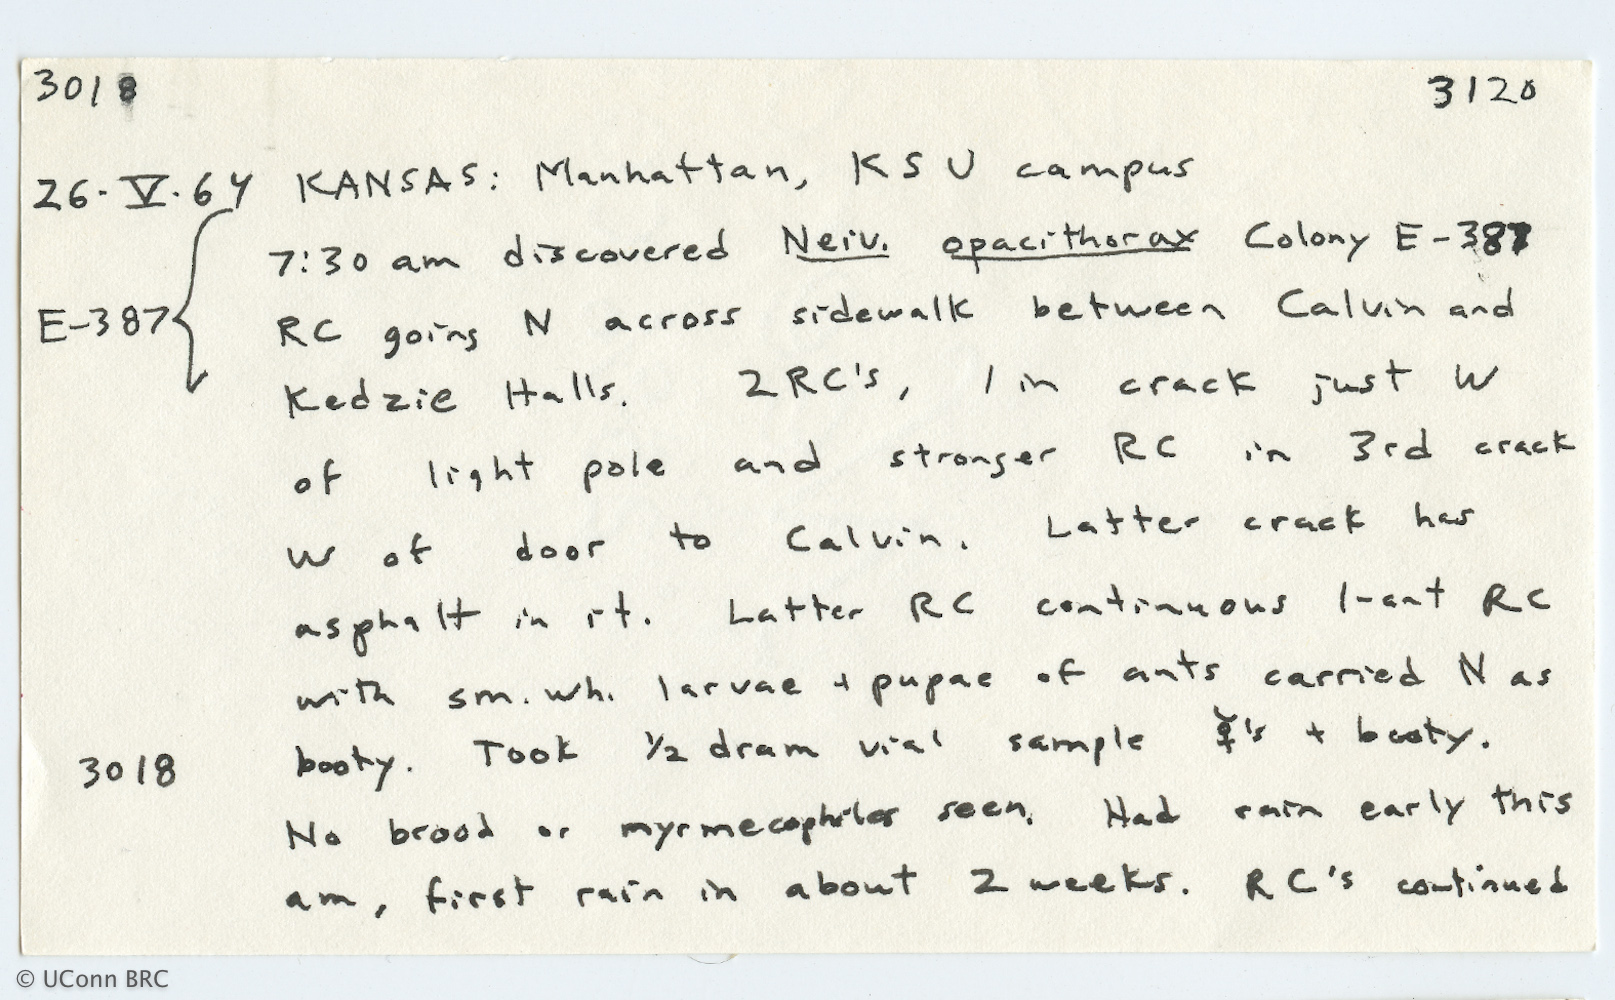 3018 3120
26·V·64 KANSAS: Manhattan, KSU campus
7:30 am discovered Neiv. opacithorax Colony E-387
E-387 RC going N across sidewalk between Calvin and
Kedzie Halls. 2 RC's, 1 in crack just W
of light pole and stronger RC in 3rd crack
W of door to Calvin. Latter crack has
asphalt in it. Latter RC continuous 1-ant RC
with sm. wh. larvae + pupae of ants carried N as
3018 booty. Took 1/2 dram vial sample ☿'s + booty.
No brood or myrmecophiles seen. Had rain early this
am, first rain in about 2 weeks. RC's continued
© UConn BRC